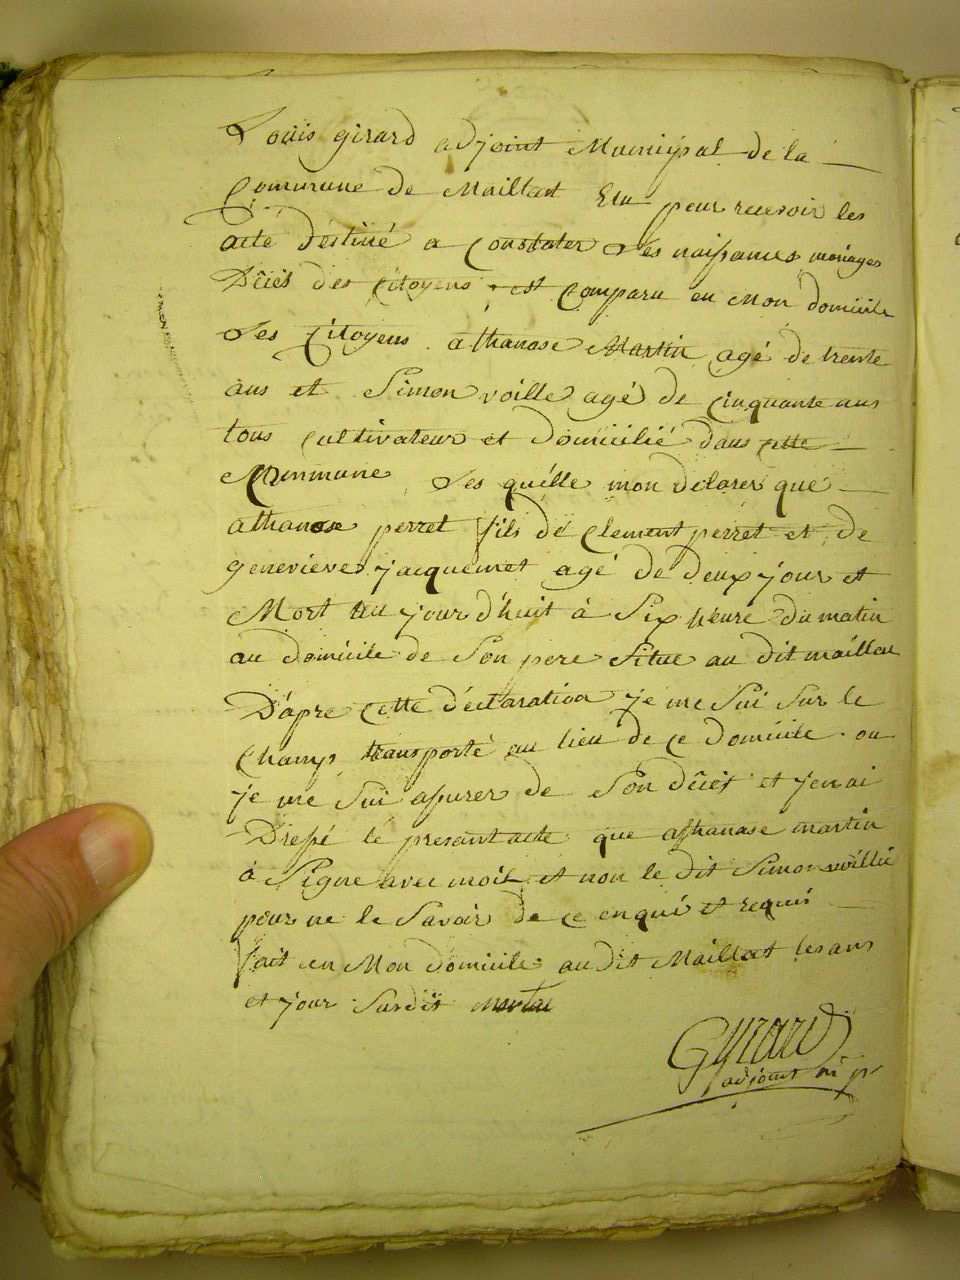 Louis girard adjoint Municipal de la
Commune de Maillat Elu pour recevoir les
acte destiné a Constater Les naissances mariages
Décés des Citoyens est Comparu en Mon domicile
Les Citoyens athanase Martin agé de trente
ans et Simon voille agé de Cinquante ans
tous Cultivateur et domicilié dans cette
Commune Les quélle mon déclarer que
athanase perret fils de Clement perret et de
genevieve jacquemet agé de deux jour et
Mort au jour d'huit à Six heure du matin
au domicile de Son pere Situe au dit maillat
D'apre Cette déclaration je me Sui Sur le
Champs transporté au lieu de ce domicile ou
je me Sui assurer de Son décés et jen ai
Dressé le presant acte que athanase martin
à Signe avec moi et non le dit Simon
pour ne le Savoir de ce enqui et requis
fait en Mon domicile au dit Maillat les ans
et jour Surdit Martin
Gyrard
adjoint